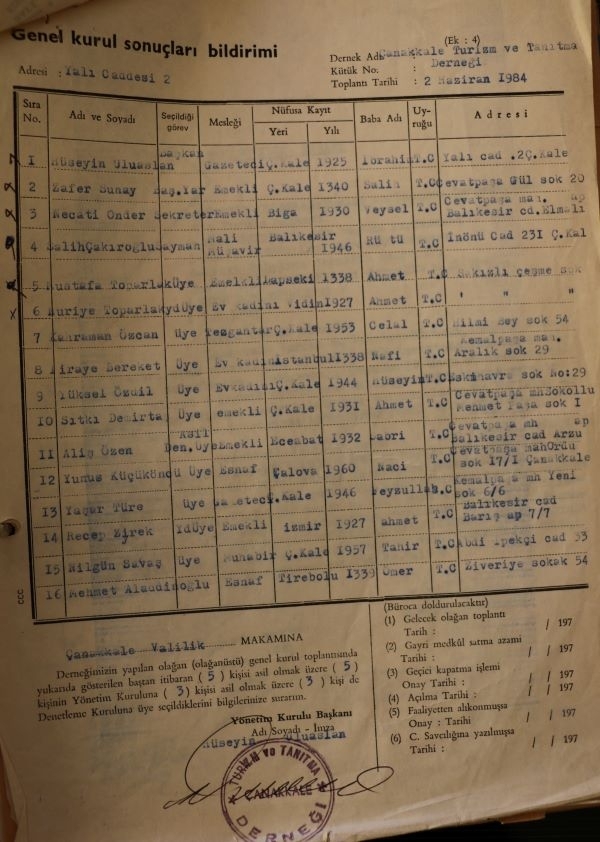 Genel kurul sonuçları bildirimi
(Ek : 4)
Adresi : Yalı Caddesi 2
Dernek Adı Çanakkale Turizm ve Tanıtma
Kütük No. : Derneği
Toplantı Tarihi : 2 Haziran 1984
Sıra No. Adı ve Soyadı Seçildiği görev Mesleği Nüfusa Kayıt Yeri Yılı Baba Adı Uyruğu Adresi
1 Hüseyin Uluaslan Başkan Gazeteci Ç.Kale 1925 İbrahim T.C Yalı cad .2Ç.Kale
2 Zafer Sunay Baş.Yar Emekli Ç.Kale 1340 Salih T.C Cevatpaşa Gül sok 20
3 Necati Onder Sekreter Emekli Biga 1930 Veysel T.C Cevatpaşa mah. ap Balıkesir cd.Elmalı
4 SalihÇakıroglu Sayman Mali Müşavir Balıkesir 1946 Rü tü T.C İnönü Cad 231 Ç.Kal
5 Mustafa Toparlak üye Emekli Lapseki 1338 Ahmet T.C sok
6 Nuriye Toparlak ydÜye Ev kadını Vidin 1927 Ahmet T.C " " "
7 Kahraman Özcan Üye Tezgantar Ç.Kale 1953 Celal T.C Hilmi Bey sok 54
8 Bereket Üye Ev kadın İstanbul 1338 Nafi T.C Kemalpaşa mah. Aralık sok 29
9 Yüksel Özdil Üye Evkadını Ç.Kale 1944 Hüseyin T.C sok No:29
10 Sıtkı Demirta Üye emekli Ç.Kale 1931 Ahmet T.C Cevatpaşa mhSokollu Mehmet Paşa sok 1
11 Aliş Özen Den.Üye Emekli Eceabat 1932 Sabri T.C Cevatpaşa mh ap Balıkesir cad Arzu
12 Yunus Küçükönc Üye Esnaf Çalova 1960 Naci T.C Cevatpaşa mahOrdu sok 17/1 Çanakkale
13 Yaşar Türe üye Gazeteci Ç.Kale 1946 Feyzullah T.C Kemalpaşa mh Yeni sok 6/6
14 Recep Zirek YdÜye Emekli izmir 1927 ahmet T.C Balıkesir cad Barış ap 7/7
15 Nilgün Savaş Üye Muhabir Ç.Kale 1957 Tahir T.C Abdi ipekçi cad 33
16 Mehmet Alaadinoglu Esnaf Tirebolu 1339 Omer T.C Ziveriye sokak 54
Çanakkale Valilik MAKAMINA
Derneğimizin yapılan olağan (olağanüstü) genel kurul toplantısında
yukarıda gösterilen baştan itibaren ( 5 ) kişisi asil olmak üzere ( 5 )
kişinin Yönetim Kuruluna ( 3 ) kişisi asil olmak üzere ( 3 ) kişi de
Denetleme Kuruluna üye seçildiklerini bilgilerinize sunarım.
Yönetim Kurulu Başkanı
Adı Soyadı - İmza
Hüseyin Uluaslan
TURİZM ve TANITMA
ÇANAKKALE
DERNEĞİ
(Büroca doldurulacaktır)
(1) Gelecek olağan toplantı
Tarih : / / 197
(2) Gayri medkûl satma azami
Tarihi : / / 197
(3) Geçici kapatma işlemi
Onay Tarihi : / / 197
(4) Açılma Tarihi : / / 197
(5) Faaliyetten alıkonmuşsa
Onay : Tarihi / / 197
(6) C. Savcılığına yazılmışsa
Tarihi : / / 197